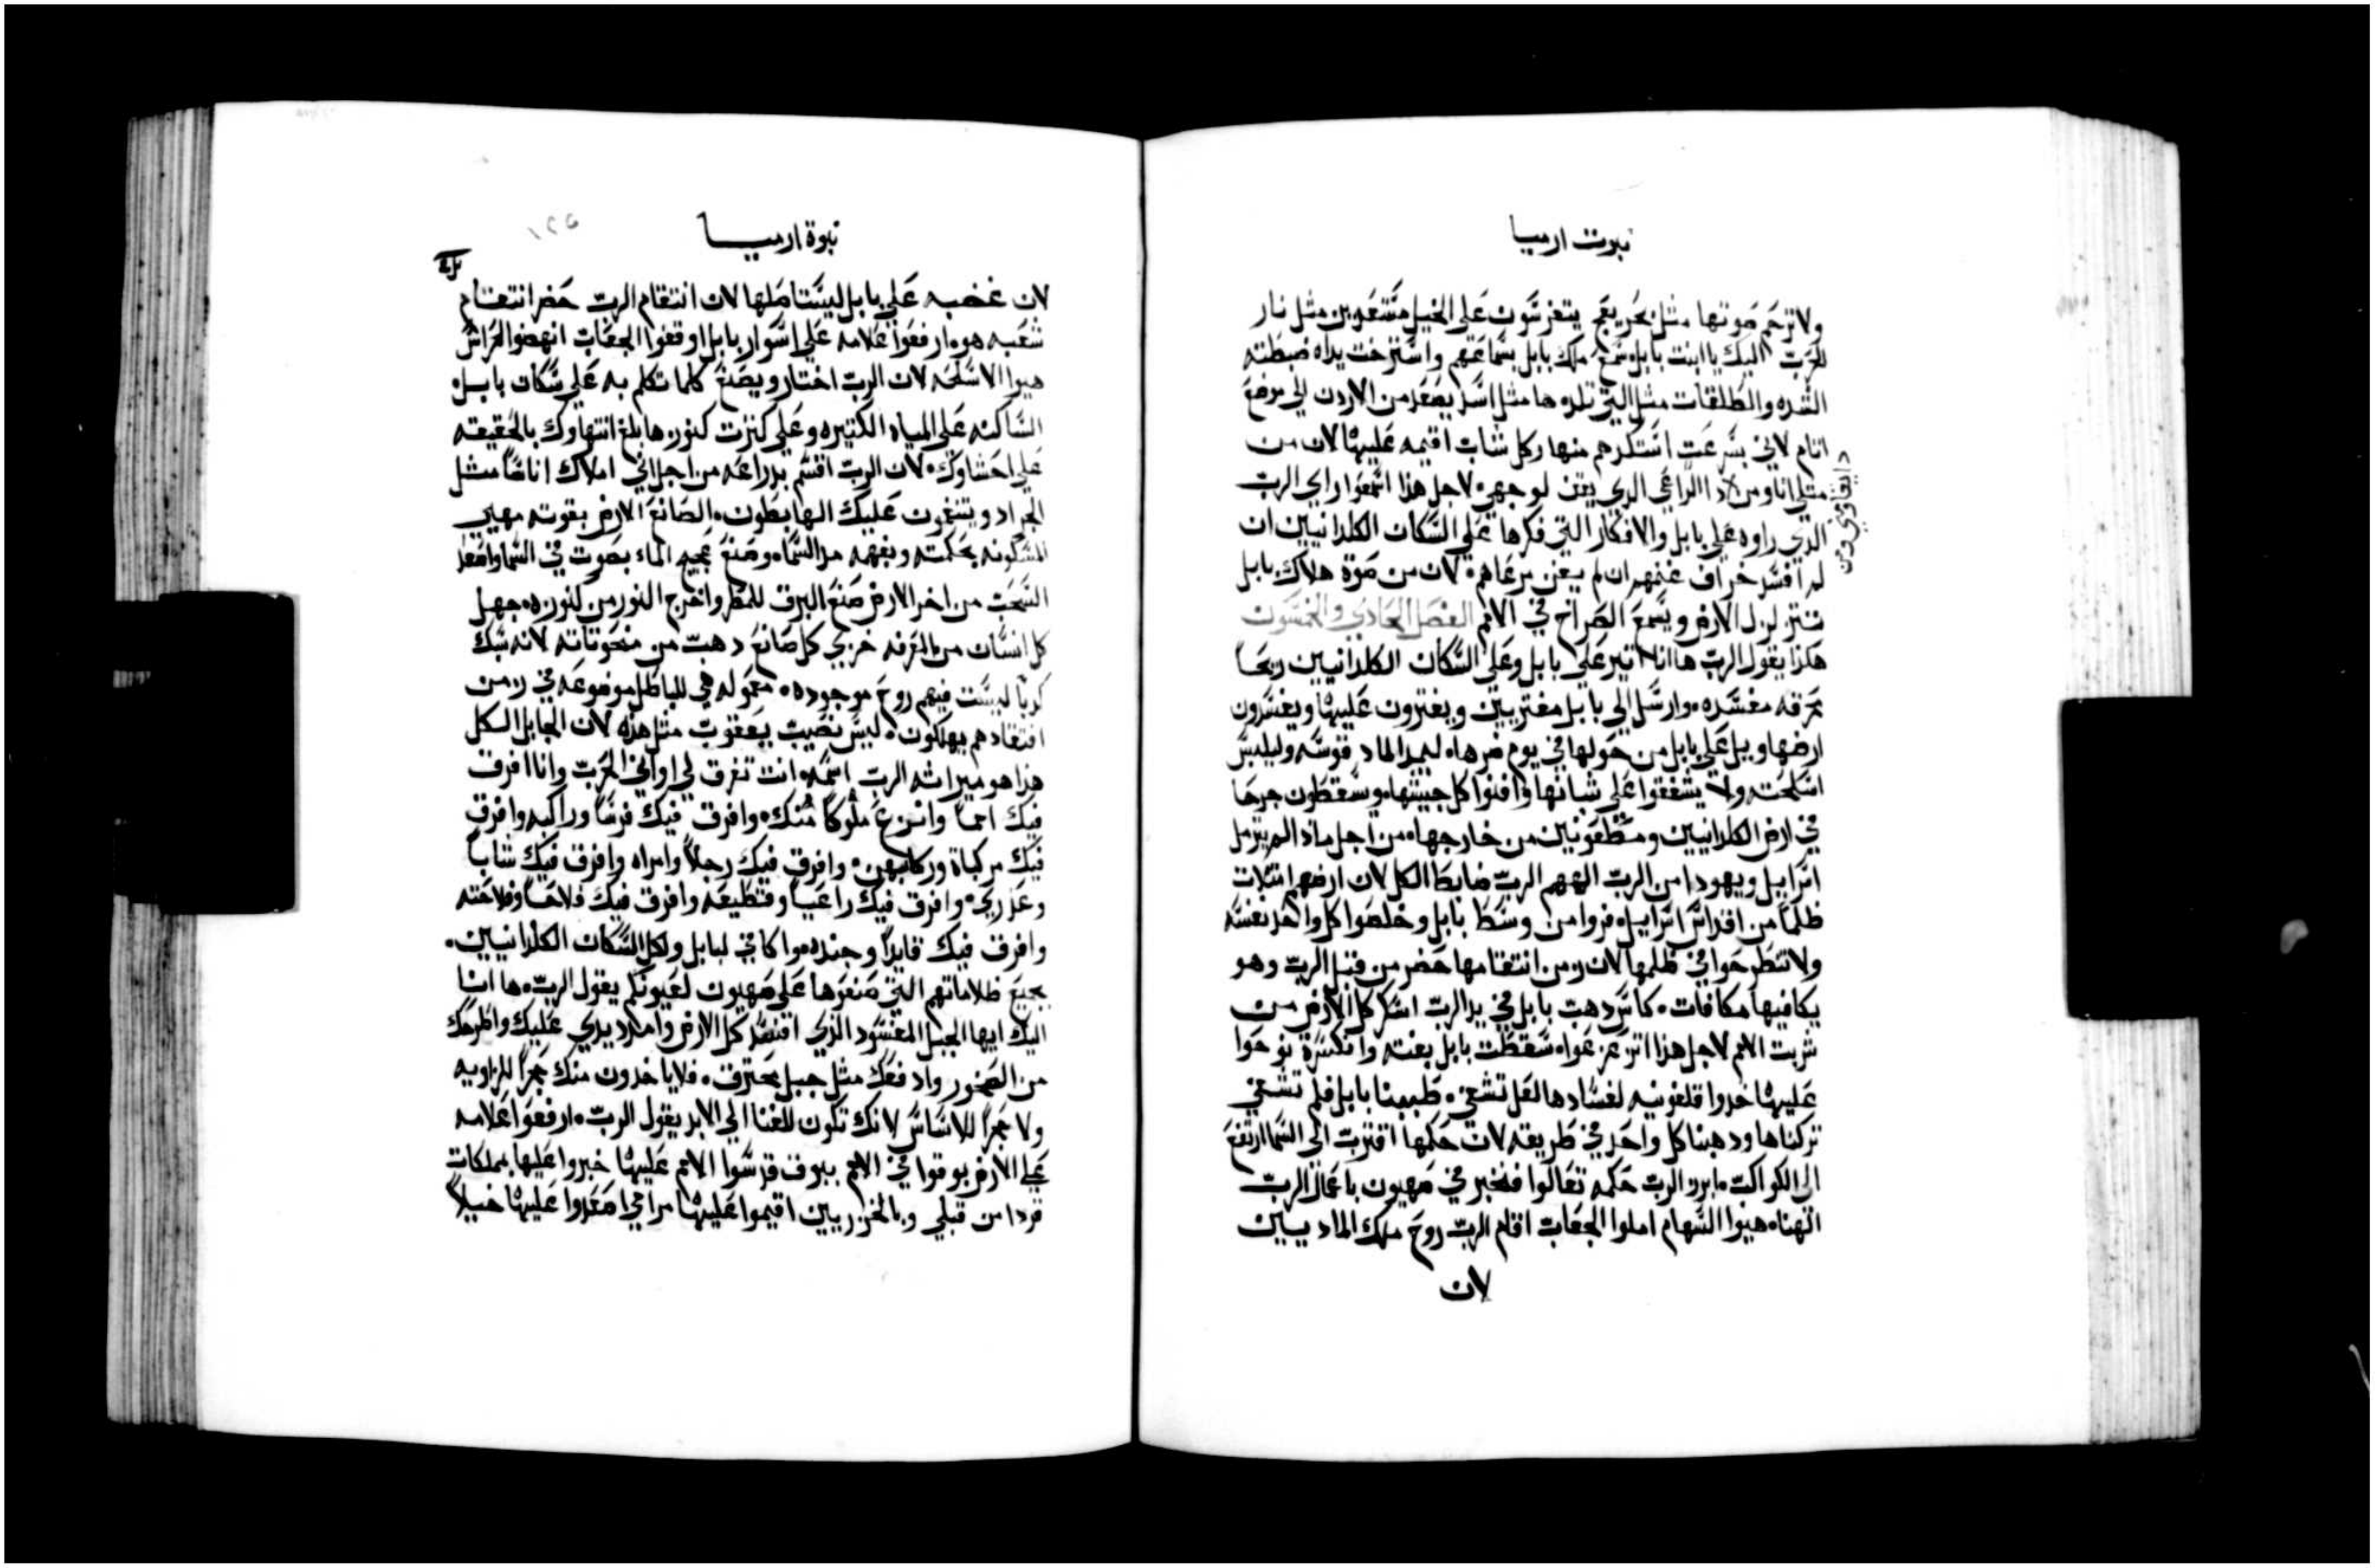 نبوت ارميا
ولا ترحم صوتها مثل بحر يعج يتفرسون على الخيل مستعدين مثل نار
للحرب اليك يا ابنت بابل سمع ملك بابل بسماعتهم واسترخت يداه ضبطته
الشده والطلقات مثل التي تلد ها مثل اسد يصعد من الاردن الي موضع
اتام لاني بسرعت استكدهم منها وكل شاب اقيمه عليها لان من
مثلي انا ومن لاد الراعي الدي يقف لوجهي لاجل هدا اسمعوا راي الرب
الدي راوه علي بابل والافكار التي فكرها علي السكان الكلدانيين ان
لم افسد خراف غنمهم ان لم يفن مرعاهم لان من صوة هلاك بابل
تتزلزل الارض ويسمع الصراخ في الامم الفصل الحادي والخمسون
هكذا يقول الرب ها انا اتير علي بابل وعلى السكان الكلدانيين ريحاً
محرقه مفسده وارسل الي بابل مفتريين ويفترون عليها ويفسدون
ارضها ويل علي بابل من حولها في يوم ضرها ليمد الماد قوسه وليلبس
اسلحته ولا يشفقوا علي شبانها وافنوا كل جيشها ويسقطون جرحا
في ارض الكلدانيين ومطعونين من خارجها من اجل مادا لم يترمل
اسراييل ويهودا من الرب الههم الرب ضابط الكل لان ارضهم امتلات
ظلماً من اقداس اسراييل فروا من وسط بابل وخلصوا كل واحد نفسه
ولا تنطرحوا في ظلمها لان زمن انتقامها حضر من قبل الرب وهو
يكافيها مكافات كاس دهب بابل في يد الرب اسكر كل الارض من
شربت الامم لاجل هدا اتزعزعوا سقطت بابل بغته وانكسرة نوحوا
عليها خدوا قلفونيه لفسادها لعل تشفي طببنا بابل فلم تشفي
تركناها ودهبنا كل واحد في طريقه لان حكمها اقترب الى السما ارتفع
الى الكواكب ما برز الرب حكمه تعالوا فنخبر في صهيون باعمال الرب
الهنا هيوا السهام املوا الجعاب اقام الرب روح ملك الماديسين
لان
نبوة ارميا
١٢٥
لان غضبه علي بابل ليستاصلها لان انتقام الرب حضر انتقام
شعبه هو ارفعوا علامه علي اسوار بابل اوقفوا الجعاب انهضوا الحراس
هيوا الاسلحه لان الرب اختار ويصنع كلما تكلم به علي سكان بابل
الساكنه علي المياه الكتيره وعلي كثرت كنوزها بلغ انتهاوك بالحقيقه
علي احشاوك لان الرب اقسم بدراعه من اجل اني املاك اناساً مثل
الجراد ويتنغمون عليك الهابطون الصانع الارض بقوته مهيي
المسكونه بحكمته وبفهمه مد السماه وصنع عجيج الماء بصوت في السما واصعد
السحب من اخر الارض صنع البرق للمطر واخرج النور من كنوزه جهل
كل انسان من المعرفه خزي كل صانع دهب من منحوتاته لانه سبك
كدباً ليست فيهم روح موجوده معموله هي للباطل موضوعه في زمن
افتقادهم يهلكون ليس نصيب يعقوب مثل هذه لان الجابل الكل
هدا هو ميراثه الرب اسمه انت تفرق لي اواني الحرب وانا افرق
فيك امماً وانزع ملوكاً منك وافرق فيك فرساً وراكبه وافرق
فيك مركباة وركابهن وافرق فيك رجلاً وامراه وافرق فيك شاباً
وعداري وافرق فيك راعياً وقطيعه وافرق فيك فلاحاً وفلاحته
وافرق فيك قايداً وجنده واكافي لبابل ولكل السكان الكلدانيين
بجميع ظلاماتهم التي صنعوها على صهيون لعيونكم يقول الرب ها انا
اليك ايها الجبل المفسود الذي افسد كل الارض وامد يدي عليك واطرحك
من الصخور وادفعك مثل جبل يحترق فلا ياخدون منك حجراً للزاويه
ولا حجراً للاساس لانك تكون للفنا الي الابد يقول الرب ارفعوا علامه
علي الارض بوقوا في الامم ببوق قدسوا الامم عليها خبروا عليها بمملكات
فردا من قبلي وبالخزريين اقيموا عليها مرامي اصعدوا عليها خيلاً